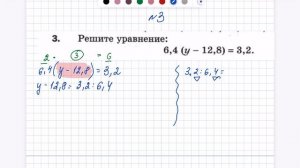 №3
3. Решите уравнение:
6,4 (y − 12,8) = 3,2.
2 · 3 = 6
6,4(y − 12,8) = 3,2
y − 12,8 = 3,2 : 6,4
3,2 : 6,4 =